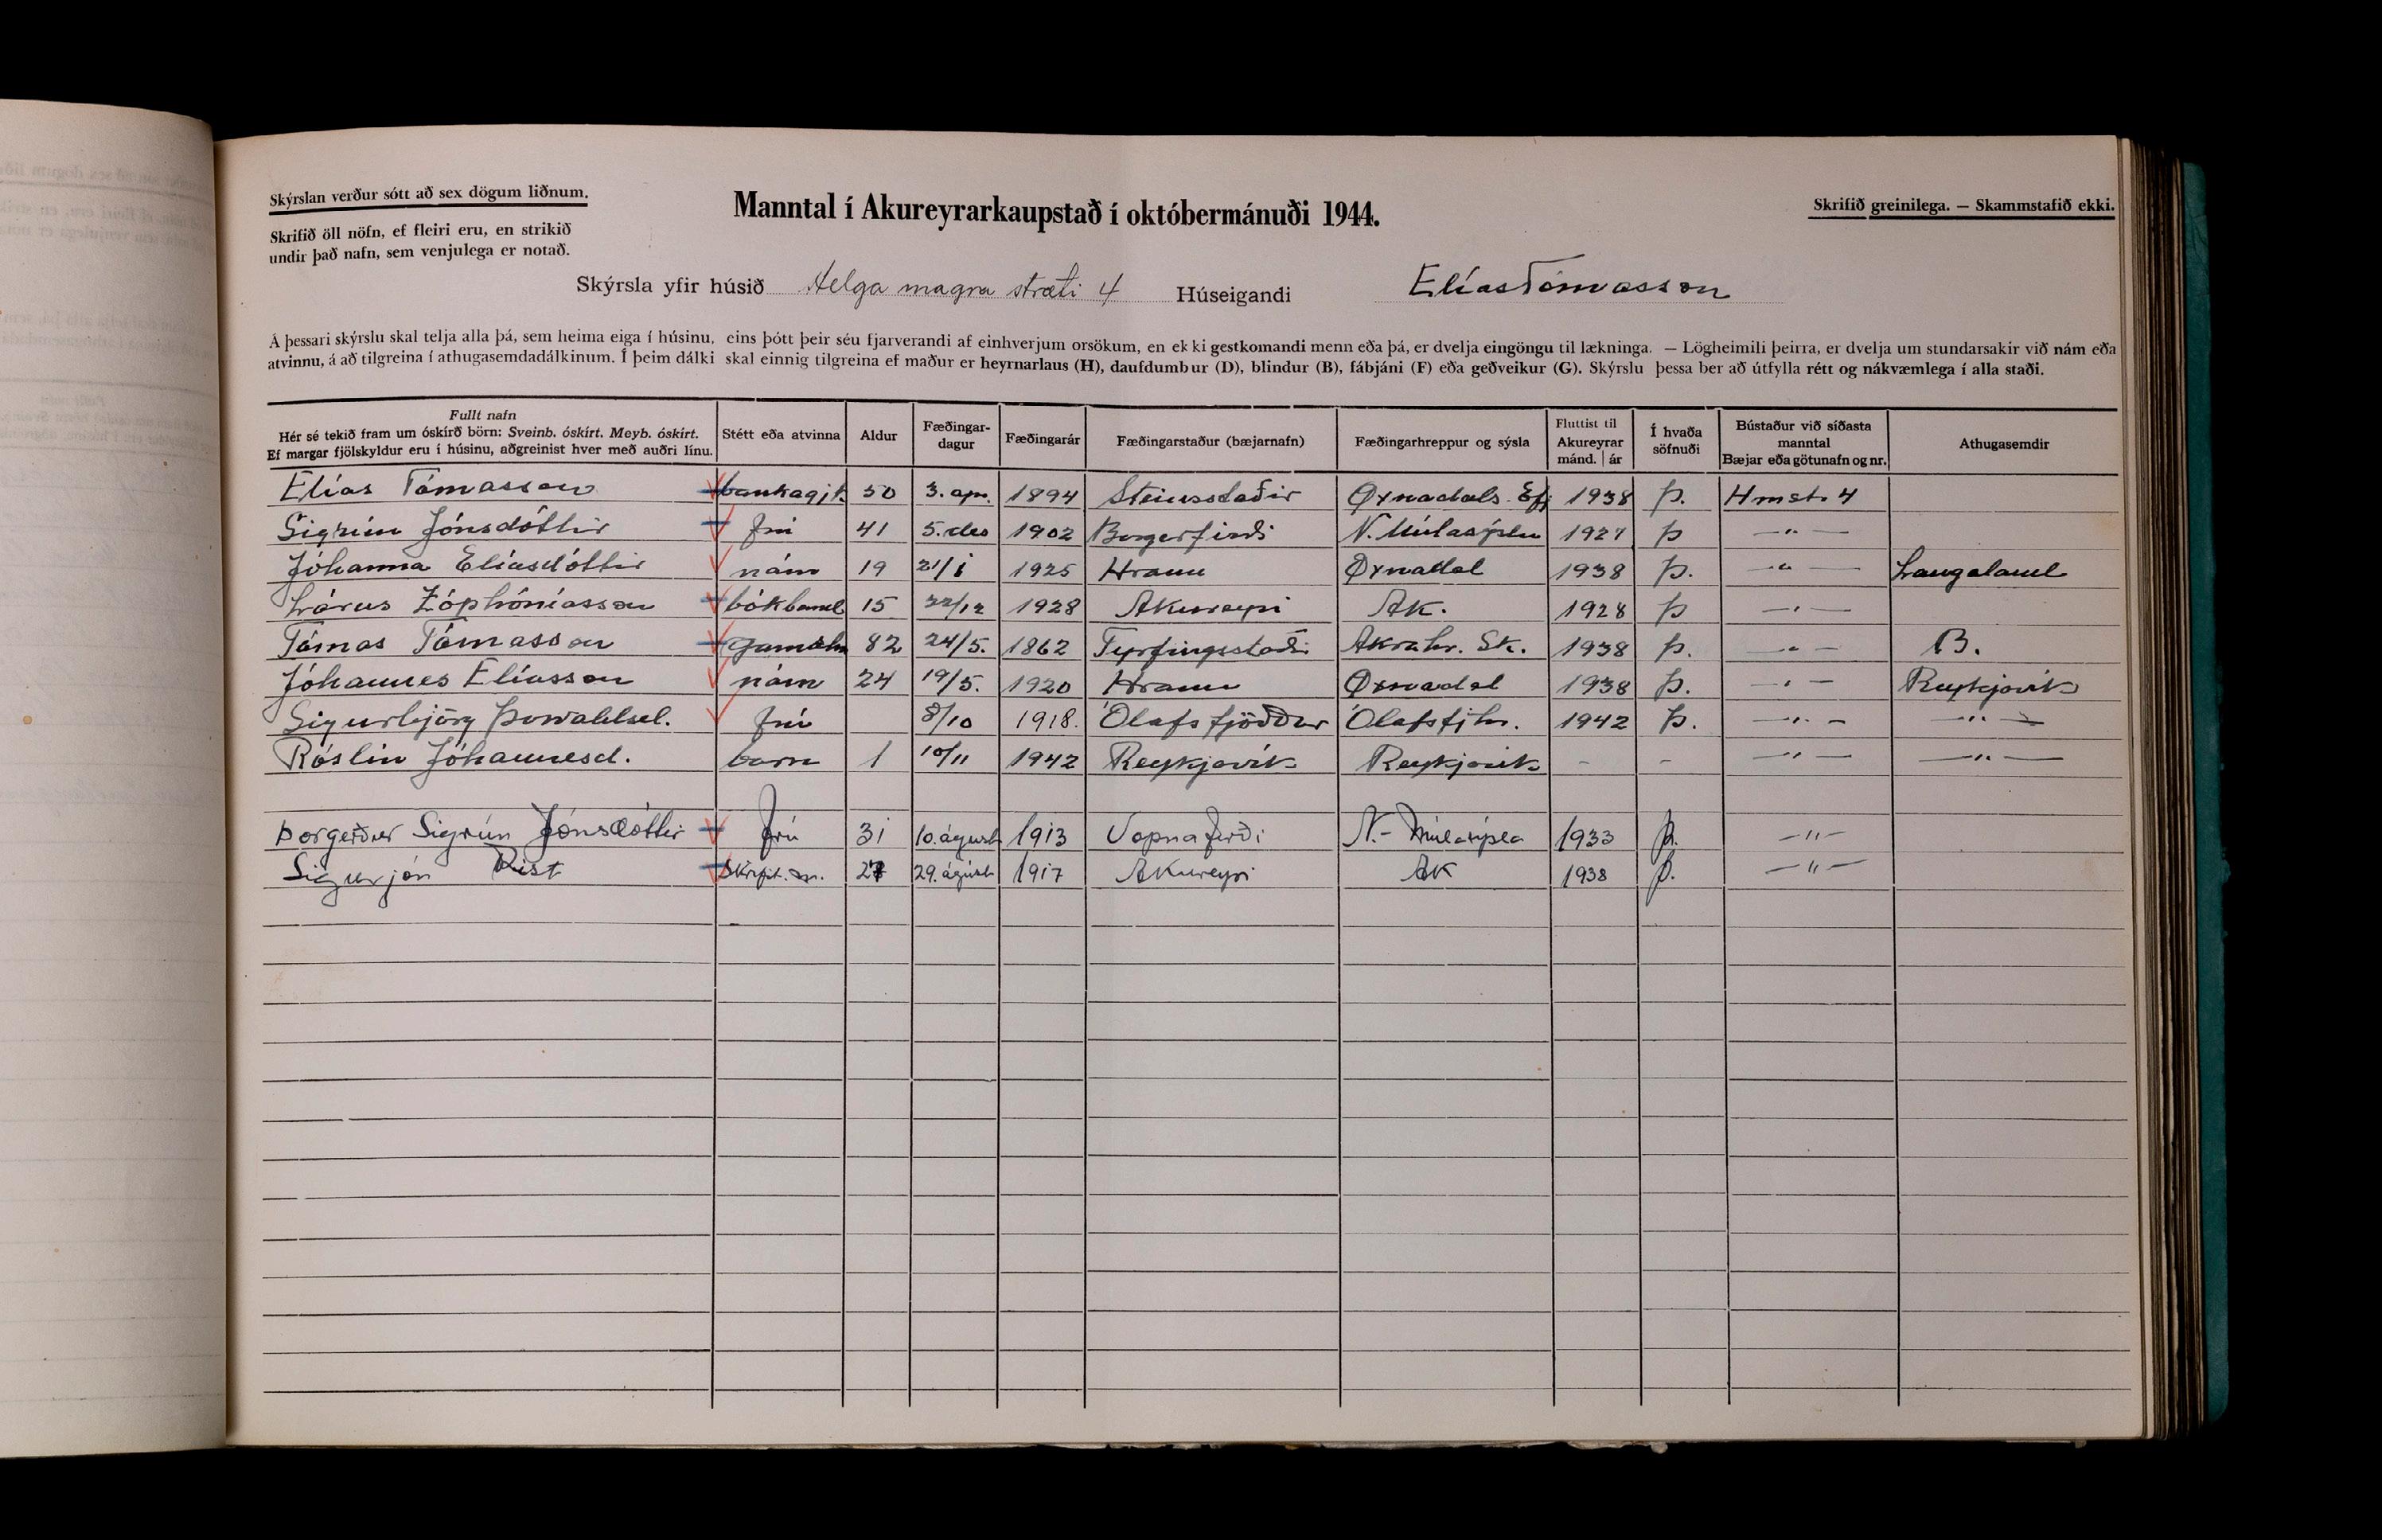 Skýrslan verður sótt að sex dögum liðnum.
Skrifið öll nöfn, ef fleiri eru, en strikið
undir það nafn, sem venjulega er notað.
Manntal í Akureyrarkaupstað í októbermánuði 1944.
Skrifið greinilega. — Skammstafið ekki.
Skýrsla yfir húsið Helga magra stræti 4 Húseigandi Elías Tómasson
Á þessari skýrslu skal telja alla þá, sem heima eiga í húsinu, eins þótt þeir séu fjarverandi af einhverjum orsökum, en ekki gestkomandi menn eða þá, er dvelja eingöngu til lækninga. — Lögheimili þeirra, er dvelja um stundarsakir við nám eða
atvinnu, á að tilgreina í athugasemdadálkinum. Í þeim dálki skal einnig tilgreina ef maður er heyrnarlaus (H), daufdumbur (D), blindur (B), fábjáni (F) eða geðveikur (G). Skýrslu þessa ber að útfylla rétt og nákvæmlega í alla staði.
Fullt nafn
Hér sé tekið fram um óskírð börn: Sveinb. óskírt. Meyb. óskírt.
Ef margar fjölskyldur eru í húsinu, aðgreinist hver með auðri línu.
Stétt eða atvinna
Aldur
Fæðingar-
dagur
Fæðingarár
Fæðingarstaður (bæjarnafn)
Fæðingarhreppur og sýsla
Fluttist til
Akureyrar
mánd. | ár
Í hvaða
söfnuði
Bústaður við síðasta
manntal
Bæjar eða götunafn og nr.
Athugasemdir
Elías Tómasson bankagjk. 50 3. apr. 1894 Steinsstaðir Øxnadals Efj 1938 Þ. Hmst. 4
Sigrún Jónsdóttir frú 41 5. des 1902 Borgarfirði N. Múlasýslu 1927 Þ —"—
Jóhanna Elíasdóttir nám 19 21/1 1925 Hraun Øxnadal 1938 Þ. —"— Laugaland
Lárus Zóphóníasson bókband 15 22/12 1928 Akureyri Ak. 1928 Þ —"—
Tómas Tómasson gamalm 82 24/5. 1862 Tyrfingsstaðir Akrahr. Sk. 1938 Þ. —"— B.
Jóhannes Elíasson nám 24 19/5. 1920 Hraun Øxnadal 1938 Þ. —"— Reykjavík
Sigurbjörg Þorvaldsd. frú 8/10 1918. Ólafsfjörður Ólafsfjhr. 1942 Þ. —"— —"—
Róslín Jóhannesd. barn 1 10/11 1942 Reykjavík Reykjavík - - —"— —"—
Þorgerður Sigrún Jónsdóttir frú 31 10. ágúst 1913 Vopnafirði N.- Múlasýsla 1933 Þ. —"—
Sigurjón Rist Skrifst.m. 27 29. ágúst 1917 Akureyri AK 1938 Þ. —"—